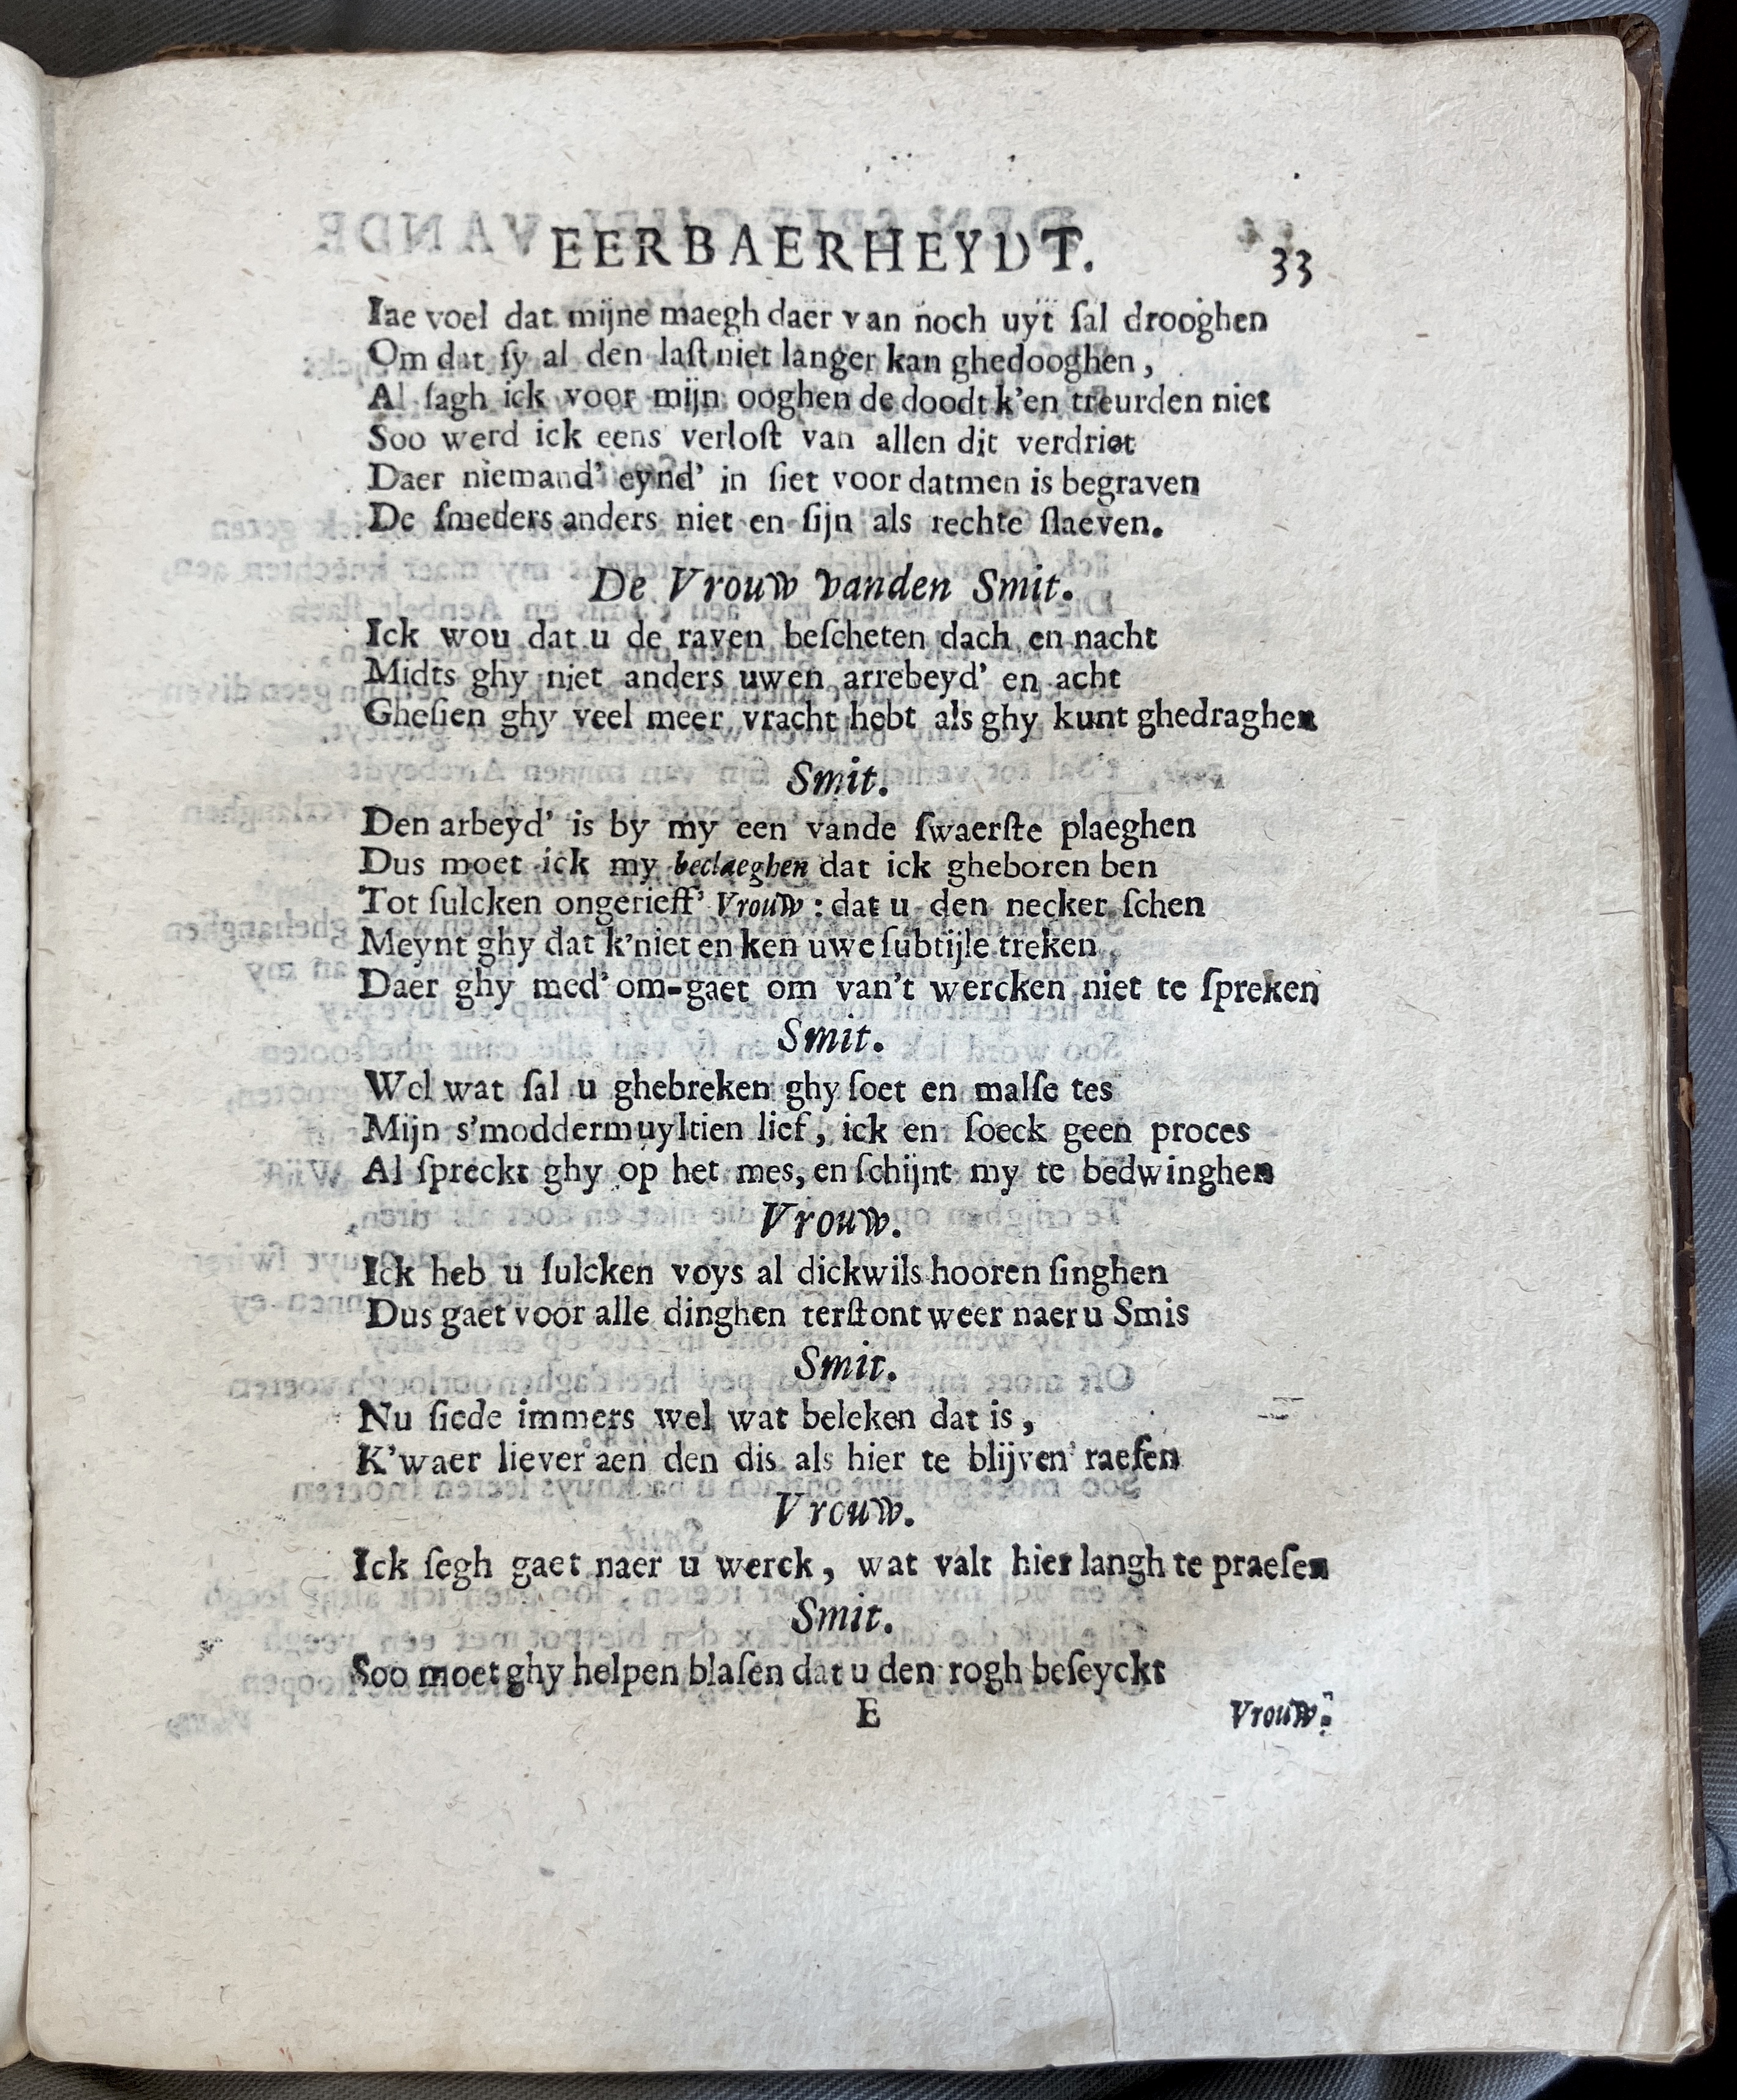 EERBAERHEYDT. 33
Iae voel dat mijne maegh daer van noch uyt ſal drooghen
Om dat ſy al den laſt niet langer kan ghedooghen,
Al ſagh ick voor mijn ooghen de doodt k'en treurden niet
Soo werd ick eens verloſt van allen dit verdriet
Daer niemand' eynd' in ſiet voor datmen is begraven
De ſmeders anders niet en ſijn als rechte ſlaeven.
De Vrouw vanden Smit.
Ick wou dat u de raven beſcheten dach en nacht
Midts ghy niet anders uwen arrebeyd' en acht
Gheſien ghy veel meer vracht hebt als ghy kunt ghedraghen
Smit.
Den arbeyd' is by my een vande ſwaerſte plaeghen
Dus moet ick my beclaeghen dat ick gheboren ben
Tot ſulcken ongerieff' Vrouw: dat u den necker ſchen
Meynt ghy dat k'niet en ken uwe ſubtijle treken,
Daer ghy med' om-gaet om van't wercken niet te ſpreken
Smit.
Wel wat ſal u ghebreken ghy ſoet en malſe tes
Mijn s'moddermuyltien lief, ick en ſoeck geen proces
Al ſpreckt ghy op het mes, en ſchijnt my te bedwinghen
Vrouw.
Ick heb u ſulcken voys al dickwils hooren ſinghen
Dus gaet voor alle dinghen terſtont weer naer u Smis
Smit.
Nu ſiede immers wel wat beleken dat is,
K'waer liever aen den dis als hier te blijven raeſen
Vrouw.
Ick ſegh gaet naer u werck, wat valt hier langh te praeſen
Smit.
Soo moet ghy helpen blaſen dat u den rogh beſeyckt
E Vrouw: